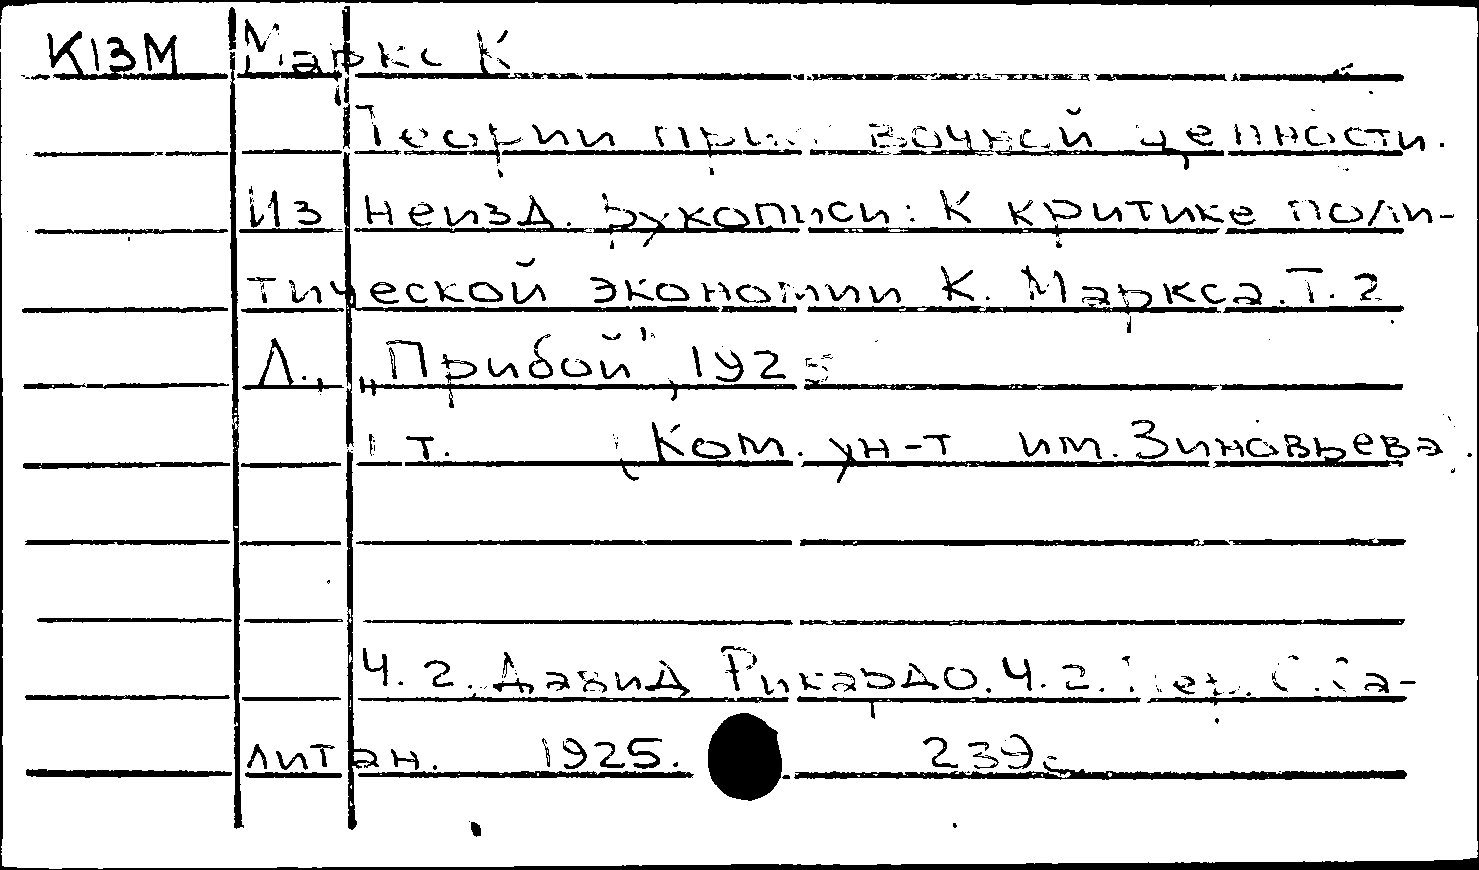 К13М Маркс К
Теории вочной ценности.
Из неизд. рукописи: К критике поли-
тической экономии К. Маркса. Т. 2
Л., „Прибой", 1925
1 т. (Ком. ун-т им. Зиновьева).
Ч. 2. Давид Рикардо. Ч. 2. Пер. С. Га-
литан. 1925. 239с.